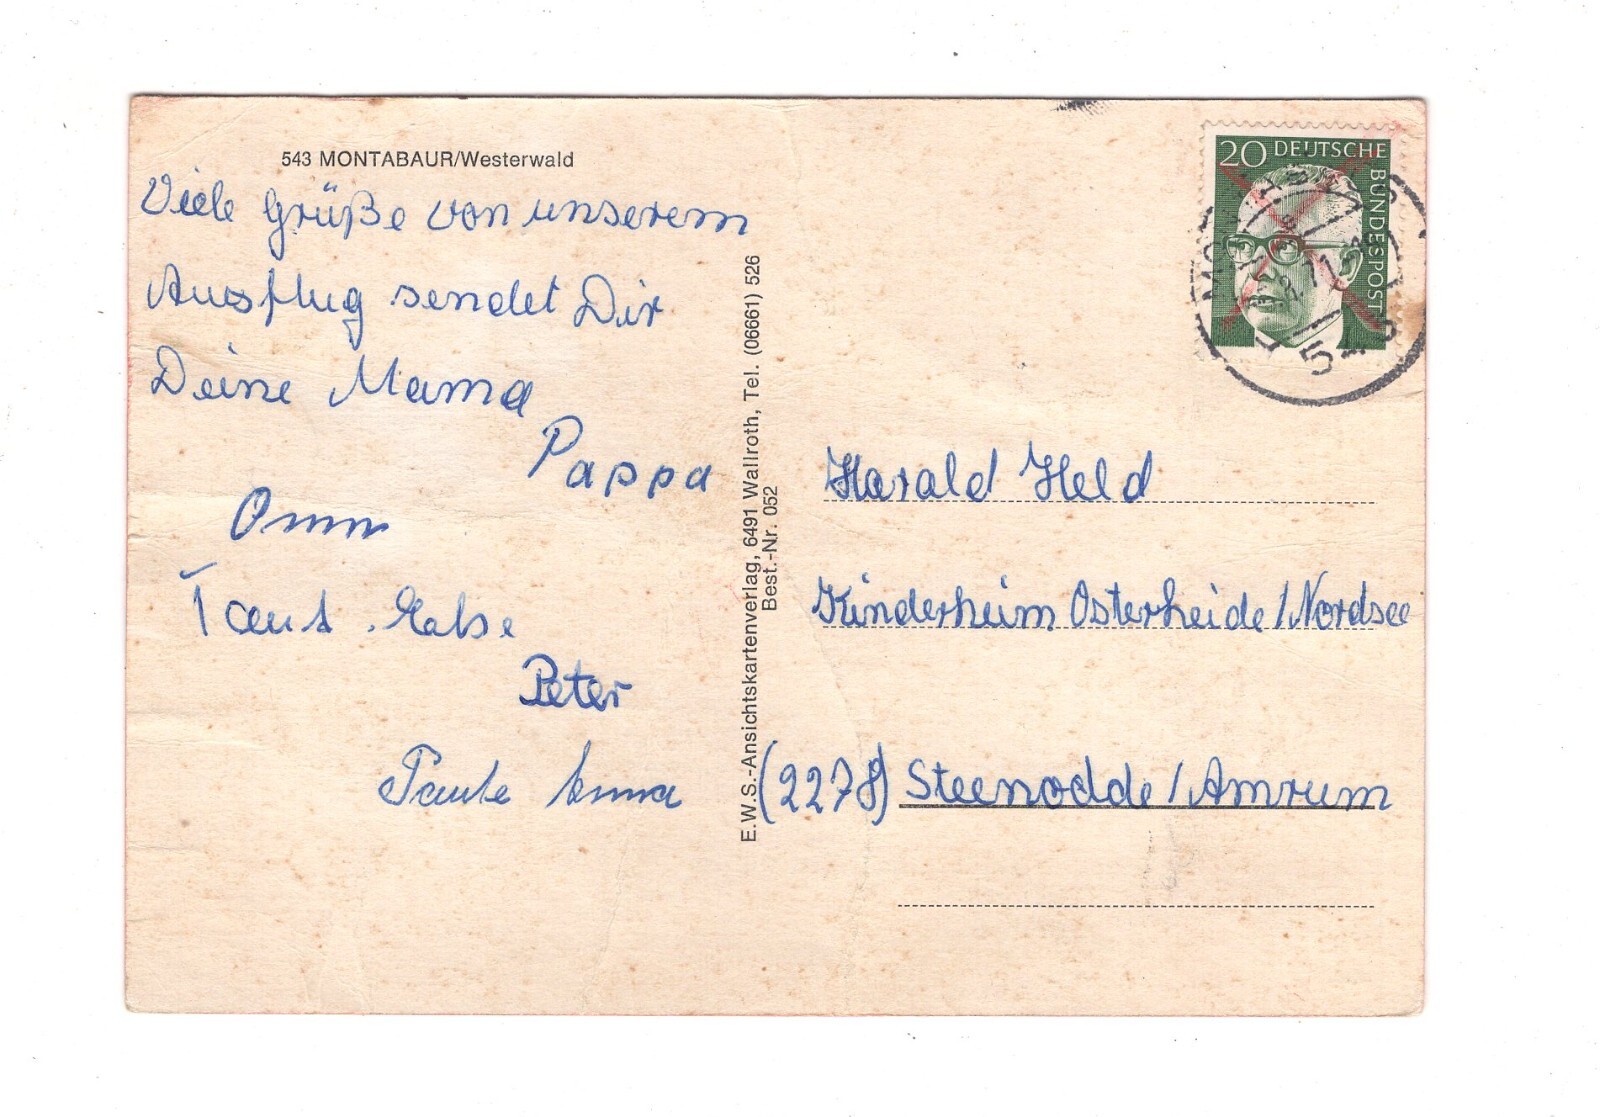 543 MONTABAUR/Westerwald
Viele Grüße von unserem
Ausflug sendet Dir
Deine Mama
Pappa
Omm
Tant
Peter
Tante Anna
E.W.S.-Ansichtskartenverlag, 6491 Wallroth, Tel. (06661) 526
Best.-Nr. 052
20 DEUTSCHE
BUNDESPOST
Harald Held
Kinderheim Osterheide/Nordsee
(2278) Steenodde/Amrum